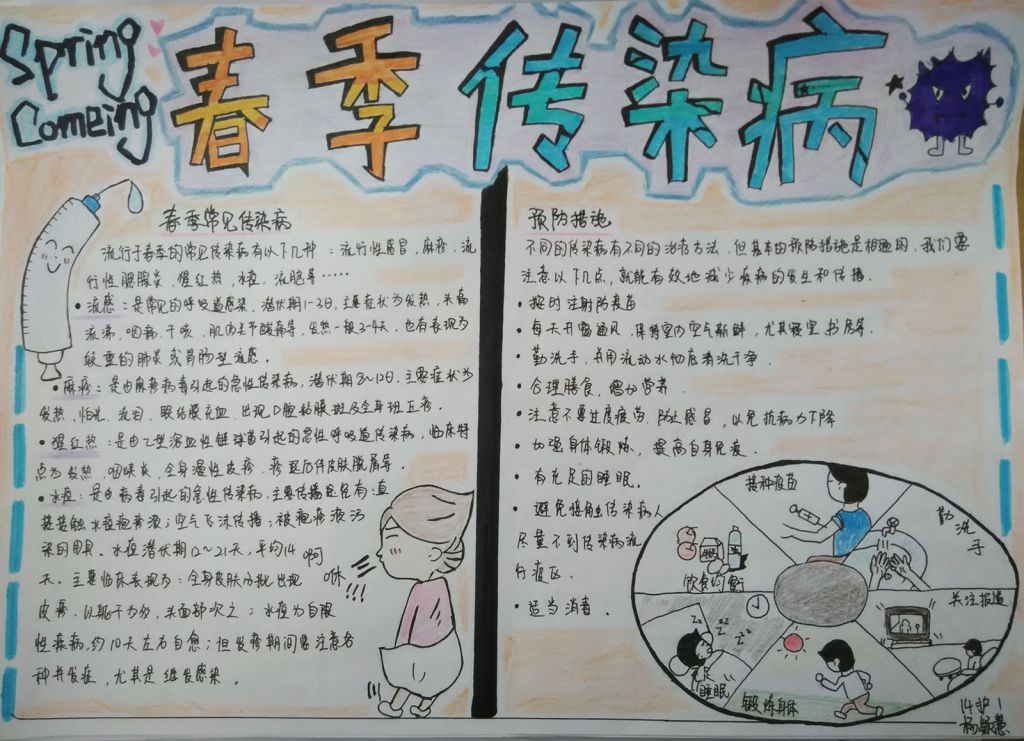 Spring
Comeing
春季传染病
春季常见传染病
流行于春季的常见传染病有以下几种：流行性感冒，麻疹，流
行性腮腺炎，猩红热，水痘，流脑等……
•流感：是常见的呼吸道感染，潜伏期1-3日，主要症状为发热，头痛
流涕，咽痛，干咳，肌肉关节酸痛等，发热一般3-4天，也有表现为
较重的肺炎或胃肠型流感。
•麻疹：是由麻疹病毒引起的急性传染病，潜伏期8～12日，主要症状为
发热、怕光、流泪、眼结膜充血、出现口腔粘膜斑及全身斑丘疹.
•猩红热：是由乙型溶血性链球菌引起的急性呼吸道传染病，临床特
点为发热，咽峡炎，全身湿性皮疹，疹退后伴皮肤脱屑等.
•水痘：是由病毒引起的急性传染病，主要传播途径有：直
接接触水痘疱疹液；空气飞沫传播；被疱疹液污
染的用具。水痘潜伏期12～21天，平均14
天。主要临床表现为：全身皮肤分批出现
皮疹，以躯干为多，头面部次之；水痘为自限
性疾病，约10天左右自愈；但发疹期间要注意各
种并发症，尤其是继发感染。
啊
咻
!!!
预防措施
不同的传染病有不同的治疗方法，但基本的预防措施是相通的，我们要
注意以下几点，就能有效地减少疾病的发生和传播.
•按时注射防疫苗
•每天开窗通风，保持室内空气新鲜，尤其寝室、书房等.
•勤洗手，并用流动水彻底清洗干净.
•合理膳食，增加营养.
•注意不要过度疲劳，防止感冒，以免抗病力下降
•加强身体锻炼，提高自身免疫.
•有充足的睡眠。
•避免接触传染病人
尽量不到传染病流
行疫区.
•适当消毒.
接种疫苗
勤洗手
饮食均衡
关注报道
zz
zz
zz
充足
睡眠
锻炼身体
14护1